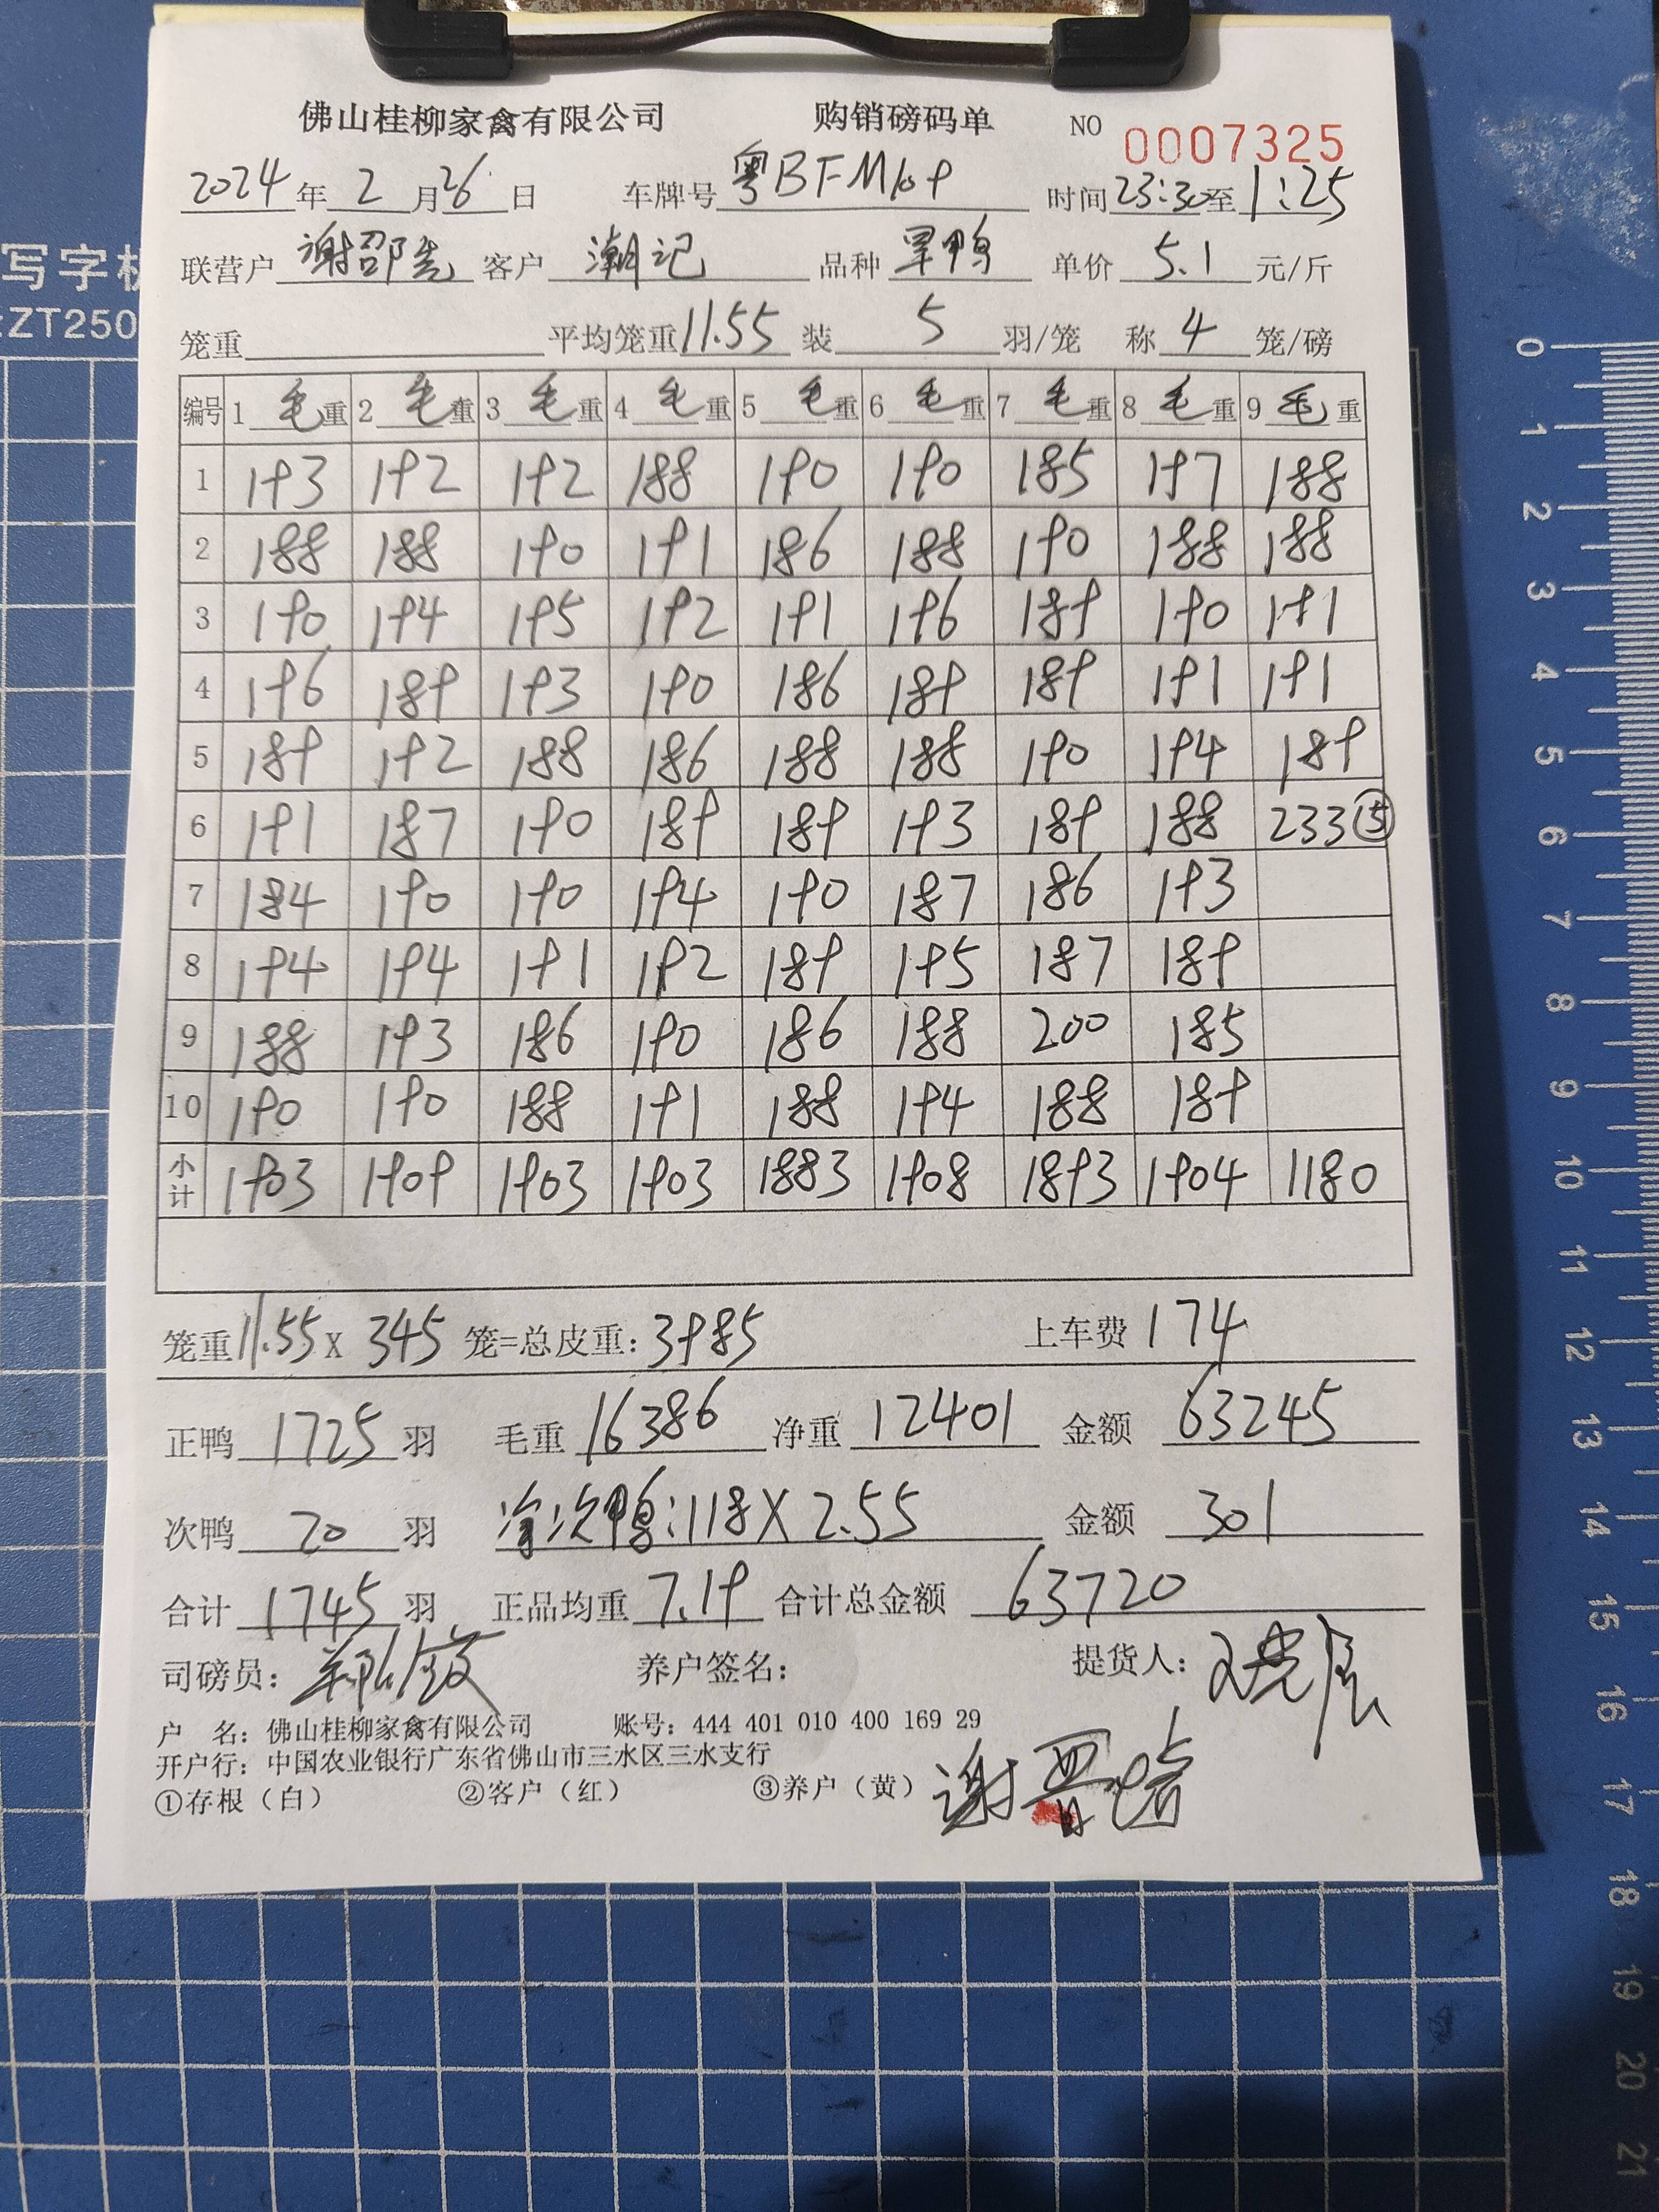 佛山桂柳家禽有限公司 购销磅码单 NO 0007325
2024年2月26日 车牌号 粤BFM109 时间23:30至1:25
联营户 谢邵先 客户 潮记 品种 旱鸭 单价 5.1 元/斤
笼重 平均笼重11.55 装 5 羽/笼 称 4 笼/磅
编号 1 毛重 2 毛重 3 毛重 4 毛重 5 毛重 6 毛重 7 毛重 8 毛重 9 毛重
1 193 192 192 188 190 190 185 197 188
2 188 188 190 191 186 188 190 188 188
3 190 194 195 192 191 196 189 190 191
4 196 189 193 190 186 189 189 191 191
5 189 192 188 186 188 188 190 194 189
6 191 187 190 189 189 193 189 188 233⑤
7 184 190 190 194 190 187 186 193
8 194 194 191 192 189 195 187 189
9 188 193 186 190 186 188 200 185
10 190 190 188 191 188 194 188 189
小计 1903 1909 1903 1903 1883 1908 1893 1904 1180
笼重11.55X 345 笼=总皮重: 3985 上车费 174
正鸭 1725 羽 毛重 16386 净重 12401 金额 63245
次鸭 20 羽 次鸭:118X2.55 金额 301
合计 1745 羽 正品均重 7.19 合计总金额 63720
司磅员: 养户签名: 提货人:
户 名: 佛山桂柳家禽有限公司 账号: 444 401 010 400 169 29
开户行: 中国农业银行广东省佛山市三水区三水支行
①存根(白) ②客户(红) ③养户(黄) 谢
写字板
:ZT250
0
1
2
3
4
5
6
7
8
9
10
11
12
13
14
15
16
17
18
19
20
21